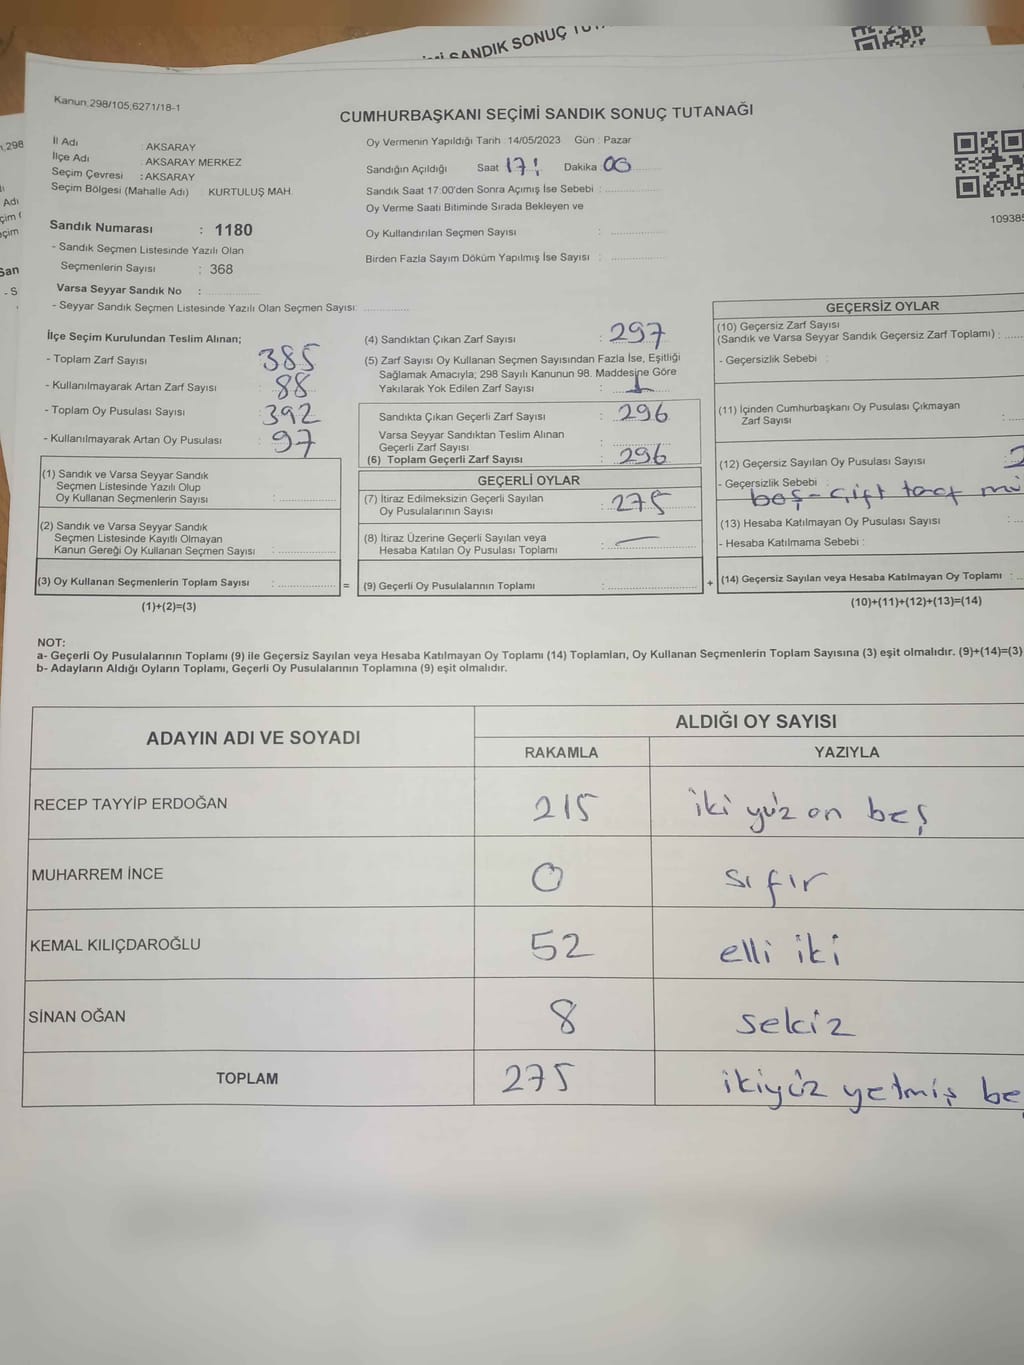 Kanun:298/105;6271/18-1
CUMHURBAŞKANI SEÇİMİ SANDIK SONUÇ TUTANAĞI
İl Adı : AKSARAY
İlçe Adı : AKSARAY MERKEZ
Seçim Çevresi : AKSARAY
Seçim Bölgesi (Mahalle Adı) KURTULUŞ MAH.
Sandık Numarası : 1180
- Sandık Seçmen Listesinde Yazılı Olan
Seçmenlerin Sayısı : 368
Varsa Seyyar Sandık No : ..............
- Seyyar Sandık Seçmen Listesinde Yazılı Olan Seçmen Sayısı: ..............
Oy Vermenin Yapıldığı Tarih : 14/05/2023 Gün : Pazar
Sandığın Açıldığı Saat 17: Dakika
Sandık Saat 17:00'den Sonra Açımış İse Sebebi : ..............
Oy Verme Saati Bitiminde Sırada Bekleyen ve
Oy Kullandırılan Seçmen Sayısı : ..............
Birden Fazla Sayım Döküm Yapılmış İse Sayısı : ..............
109385
İlçe Seçim Kurulundan Teslim Alınan;
- Toplam Zarf Sayısı : 385
- Kullanılmayarak Artan Zarf Sayısı : 88
- Toplam Oy Pusulası Sayısı : 392
- Kullanılmayarak Artan Oy Pusulası : 97
(1) Sandık ve Varsa Seyyar Sandık
Seçmen Listesinde Yazılı Olup
Oy Kullanan Seçmenlerin Sayısı : ..............
(2) Sandık ve Varsa Seyyar Sandık
Seçmen Listesinde Kayıtlı Olmayan
Kanun Gereği Oy Kullanan Seçmen Sayısı : ..............
(3) Oy Kullanan Seçmenlerin Toplam Sayısı : .............. =
(1)+(2)=(3)
(4) Sandıktan Çıkan Zarf Sayısı : 297
(5) Zarf Sayısı Oy Kullanan Seçmen Sayısından Fazla İse, Eşitliği
Sağlamak Amacıyla; 298 Sayılı Kanunun 98. Maddesine Göre
Yakılarak Yok Edilen Zarf Sayısı : 1
Sandıkta Çıkan Geçerli Zarf Sayısı : 296
Varsa Seyyar Sandıktan Teslim Alınan
Geçerli Zarf Sayısı : ..............
(6) Toplam Geçerli Zarf Sayısı : 296
GEÇERLİ OYLAR
(7) İtiraz Edilmeksizin Geçerli Sayılan
Oy Pusulalarının Sayısı : 275
(8) İtiraz Üzerine Geçerli Sayılan veya
Hesaba Katılan Oy Pusulası Toplamı : —
(9) Geçerli Oy Pusulalarının Toplamı : .............. +
GEÇERSİZ OYLAR
(10) Geçersiz Zarf Sayısı
(Sandık ve Varsa Seyyar Sandık Geçersiz Zarf Toplamı) : .....
- Geçersizlik Sebebi :
(11) İçinden Cumhurbaşkanı Oy Pusulası Çıkmayan
Zarf Sayısı : ..
(12) Geçersiz Sayılan Oy Pusulası Sayısı : 2
- Geçersizlik Sebebi :
boş - çift
(13) Hesaba Katılmayan Oy Pusulası Sayısı : ..
- Hesaba Katılmama Sebebi :
(14) Geçersiz Sayılan veya Hesaba Katılmayan Oy Toplamı : ..
(10)+(11)+(12)+(13)=(14)
NOT:
a- Geçerli Oy Pusulalarının Toplamı (9) ile Geçersiz Sayılan veya Hesaba Katılmayan Oy Toplamı (14) Toplamları, Oy Kullanan Seçmenlerin Toplam Sayısına (3) eşit olmalıdır. (9)+(14)=(3)
b- Adayların Aldığı Oyların Toplamı, Geçerli Oy Pusulalarının Toplamına (9) eşit olmalıdır.
ADAYIN ADI VE SOYADI
ALDIĞI OY SAYISI
RAKAMLA YAZIYLA
RECEP TAYYİP ERDOĞAN 215 iki yüz on beş
MUHARREM İNCE 0 sıfır
KEMAL KILIÇDAROĞLU 52 elli iki
SİNAN OĞAN 8 sekiz
TOPLAM 275 ikiyüz yetmiş be